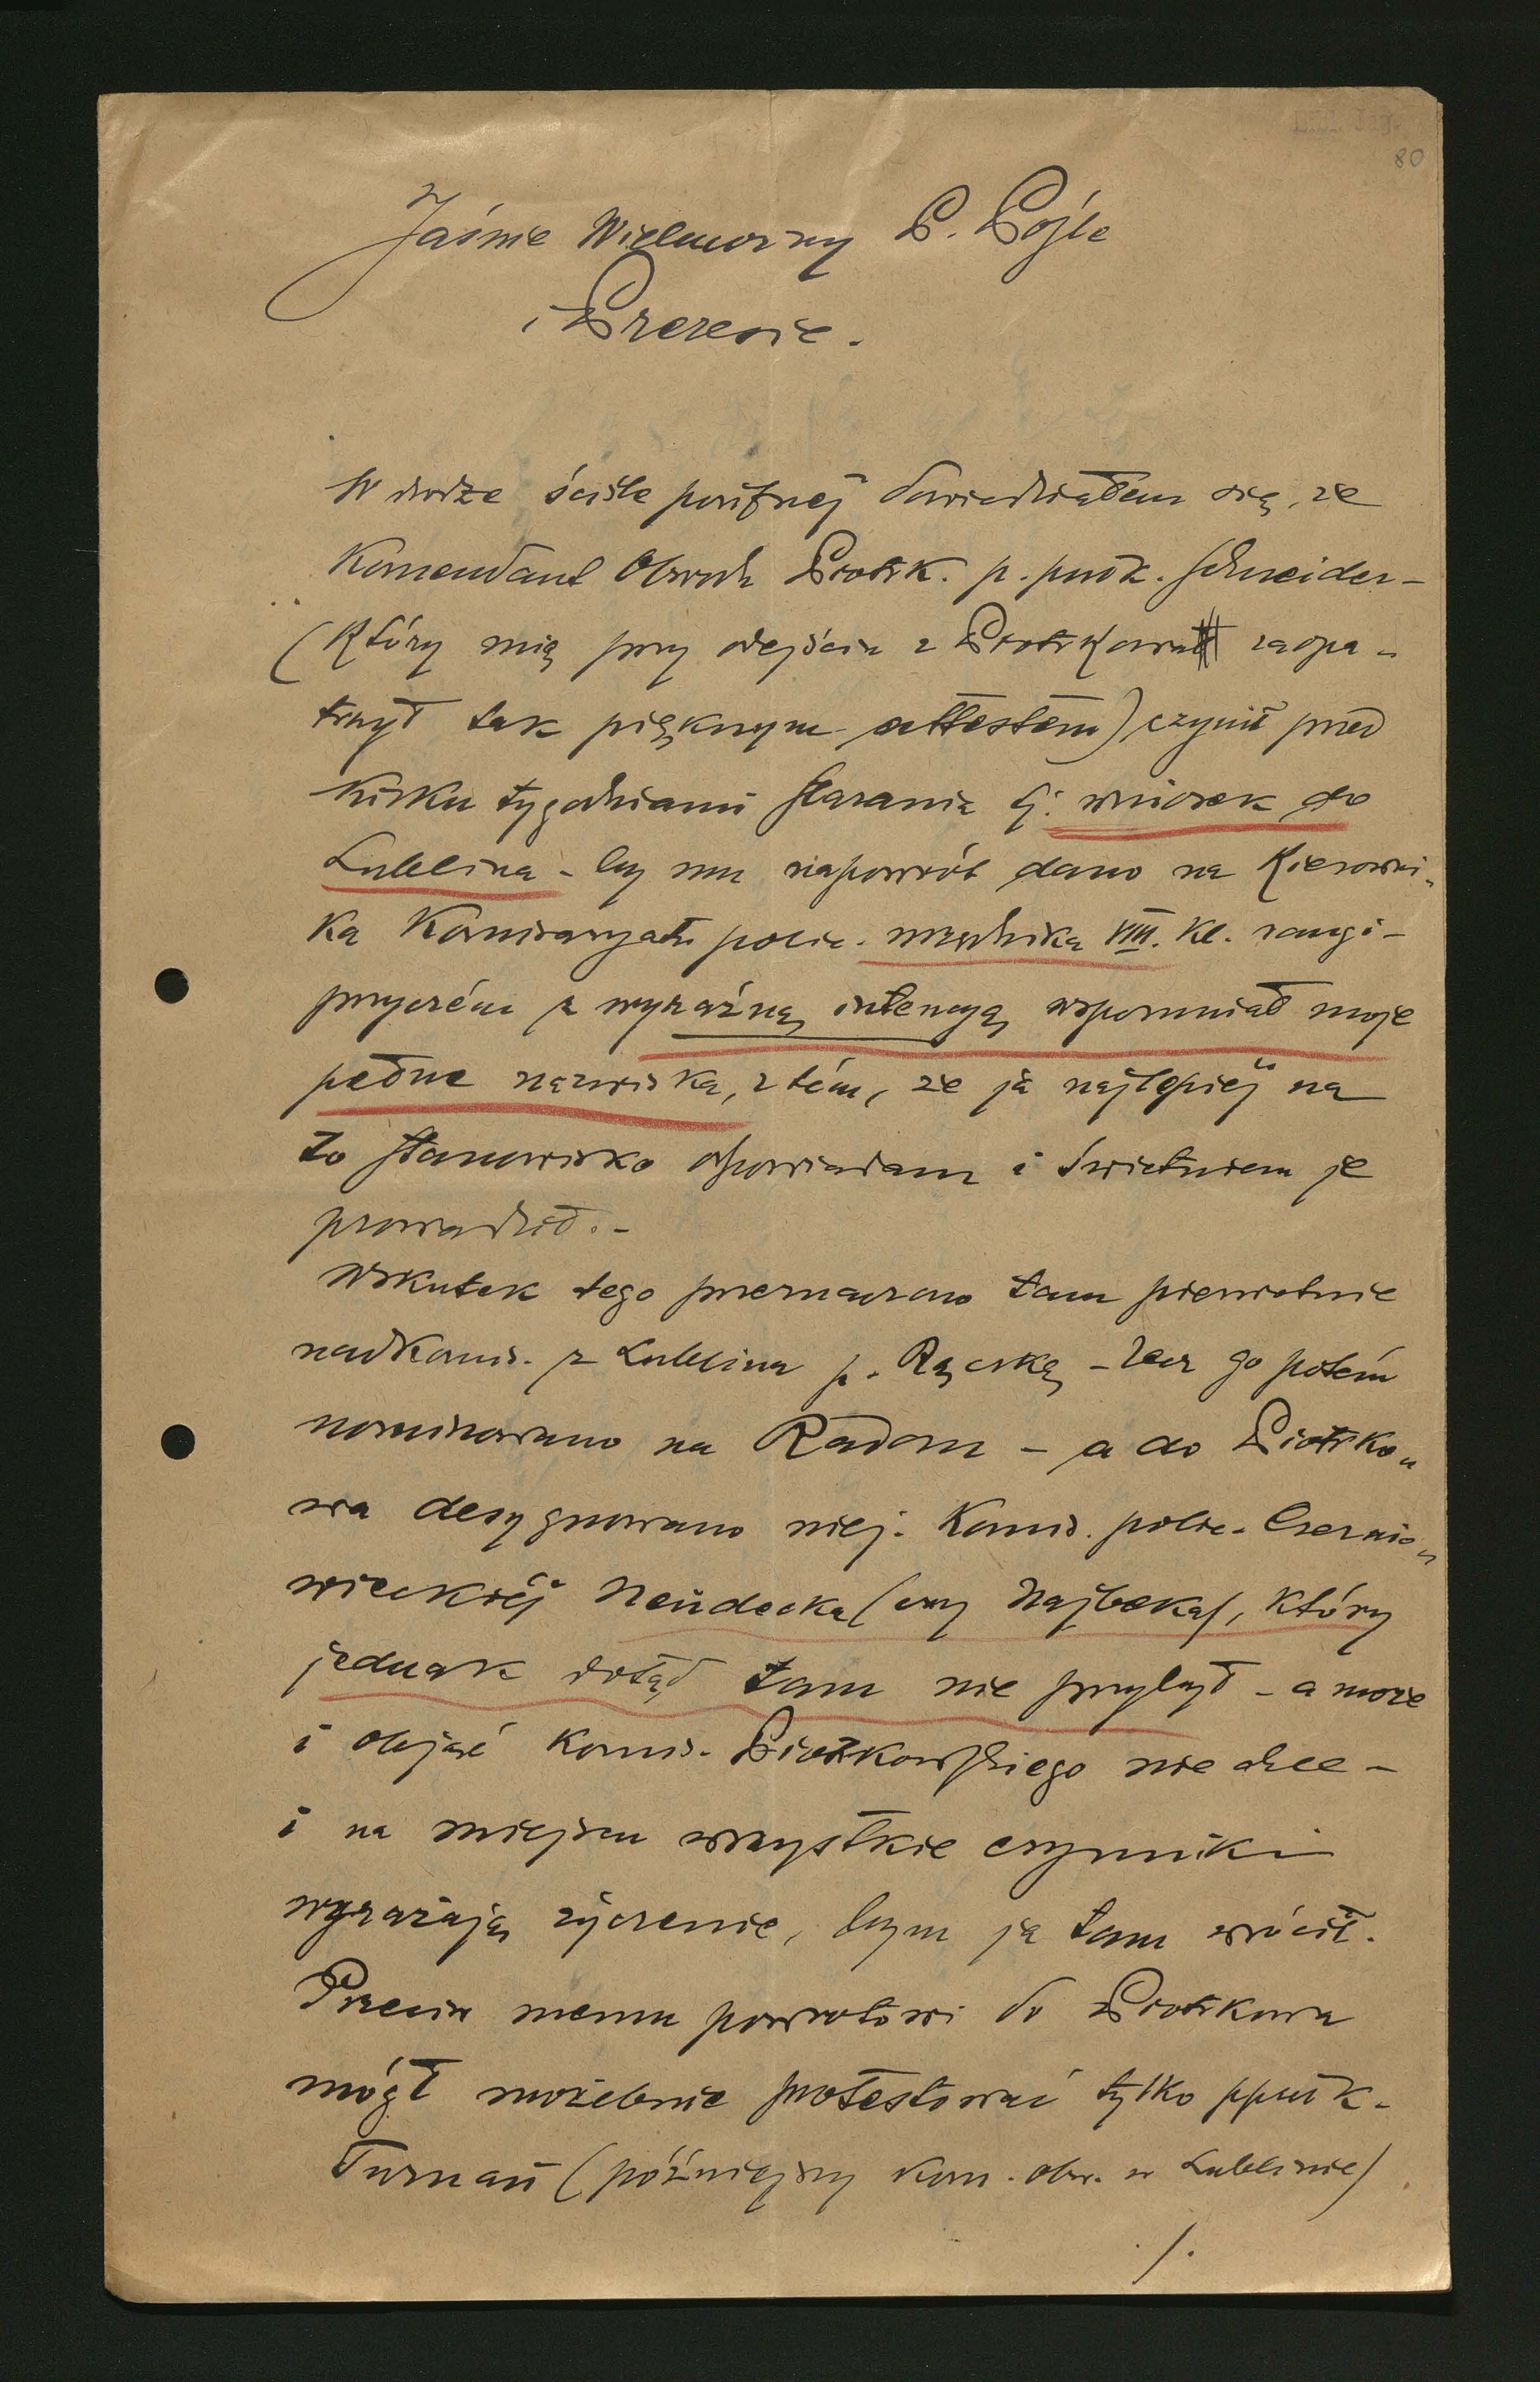 80
Jaśnie Wielmożny P. Pośle
i Prezesie.
W drodze ściśle poufnéj dowiedziałem się, że
Komendant Obwodu Piotrk. p. pułk. Schneider –
(który mię przy odejściu z Piotrkowa zaopa-
trzył tak pięknym attestem) czynił przed
kilku tygodniami starania tj: wniosek do
Lublina – by mu napowrót dano na Kierowni-
ka Komisaryatu polic. urzędnika VIII. kl. rangi –
przyczém z wyraźną intencyą wspomniał moje
pełne nazwisko, z tém, że ja najlepiéj na
to stanowisko odpowiadam i świetniem je
prowadził. –
Wskutek tego przeznaczono tam pierwotnie
nadkomis. z Lublina p. Rączkę – lecz go potém
nominowano na Radom – a do Piotrko-
wa desygnowano niej. Komis. polic. Czernio-
wieckiéj Neudecka (czy Najbeka), który
jednak dotąd tam nie przybył – a może
i objąć komis. Piotrkowskiego nie chce –
i na miejscu wszystkie czynniki
wyrażają życzenie, bym ja tam wrócił.
Przeciw memu powrotowi do Piotrkowa
mógł możebnie protestować tylko ppułk.
Turnau (późniejszy kom. obw. w Lublinie)
./.